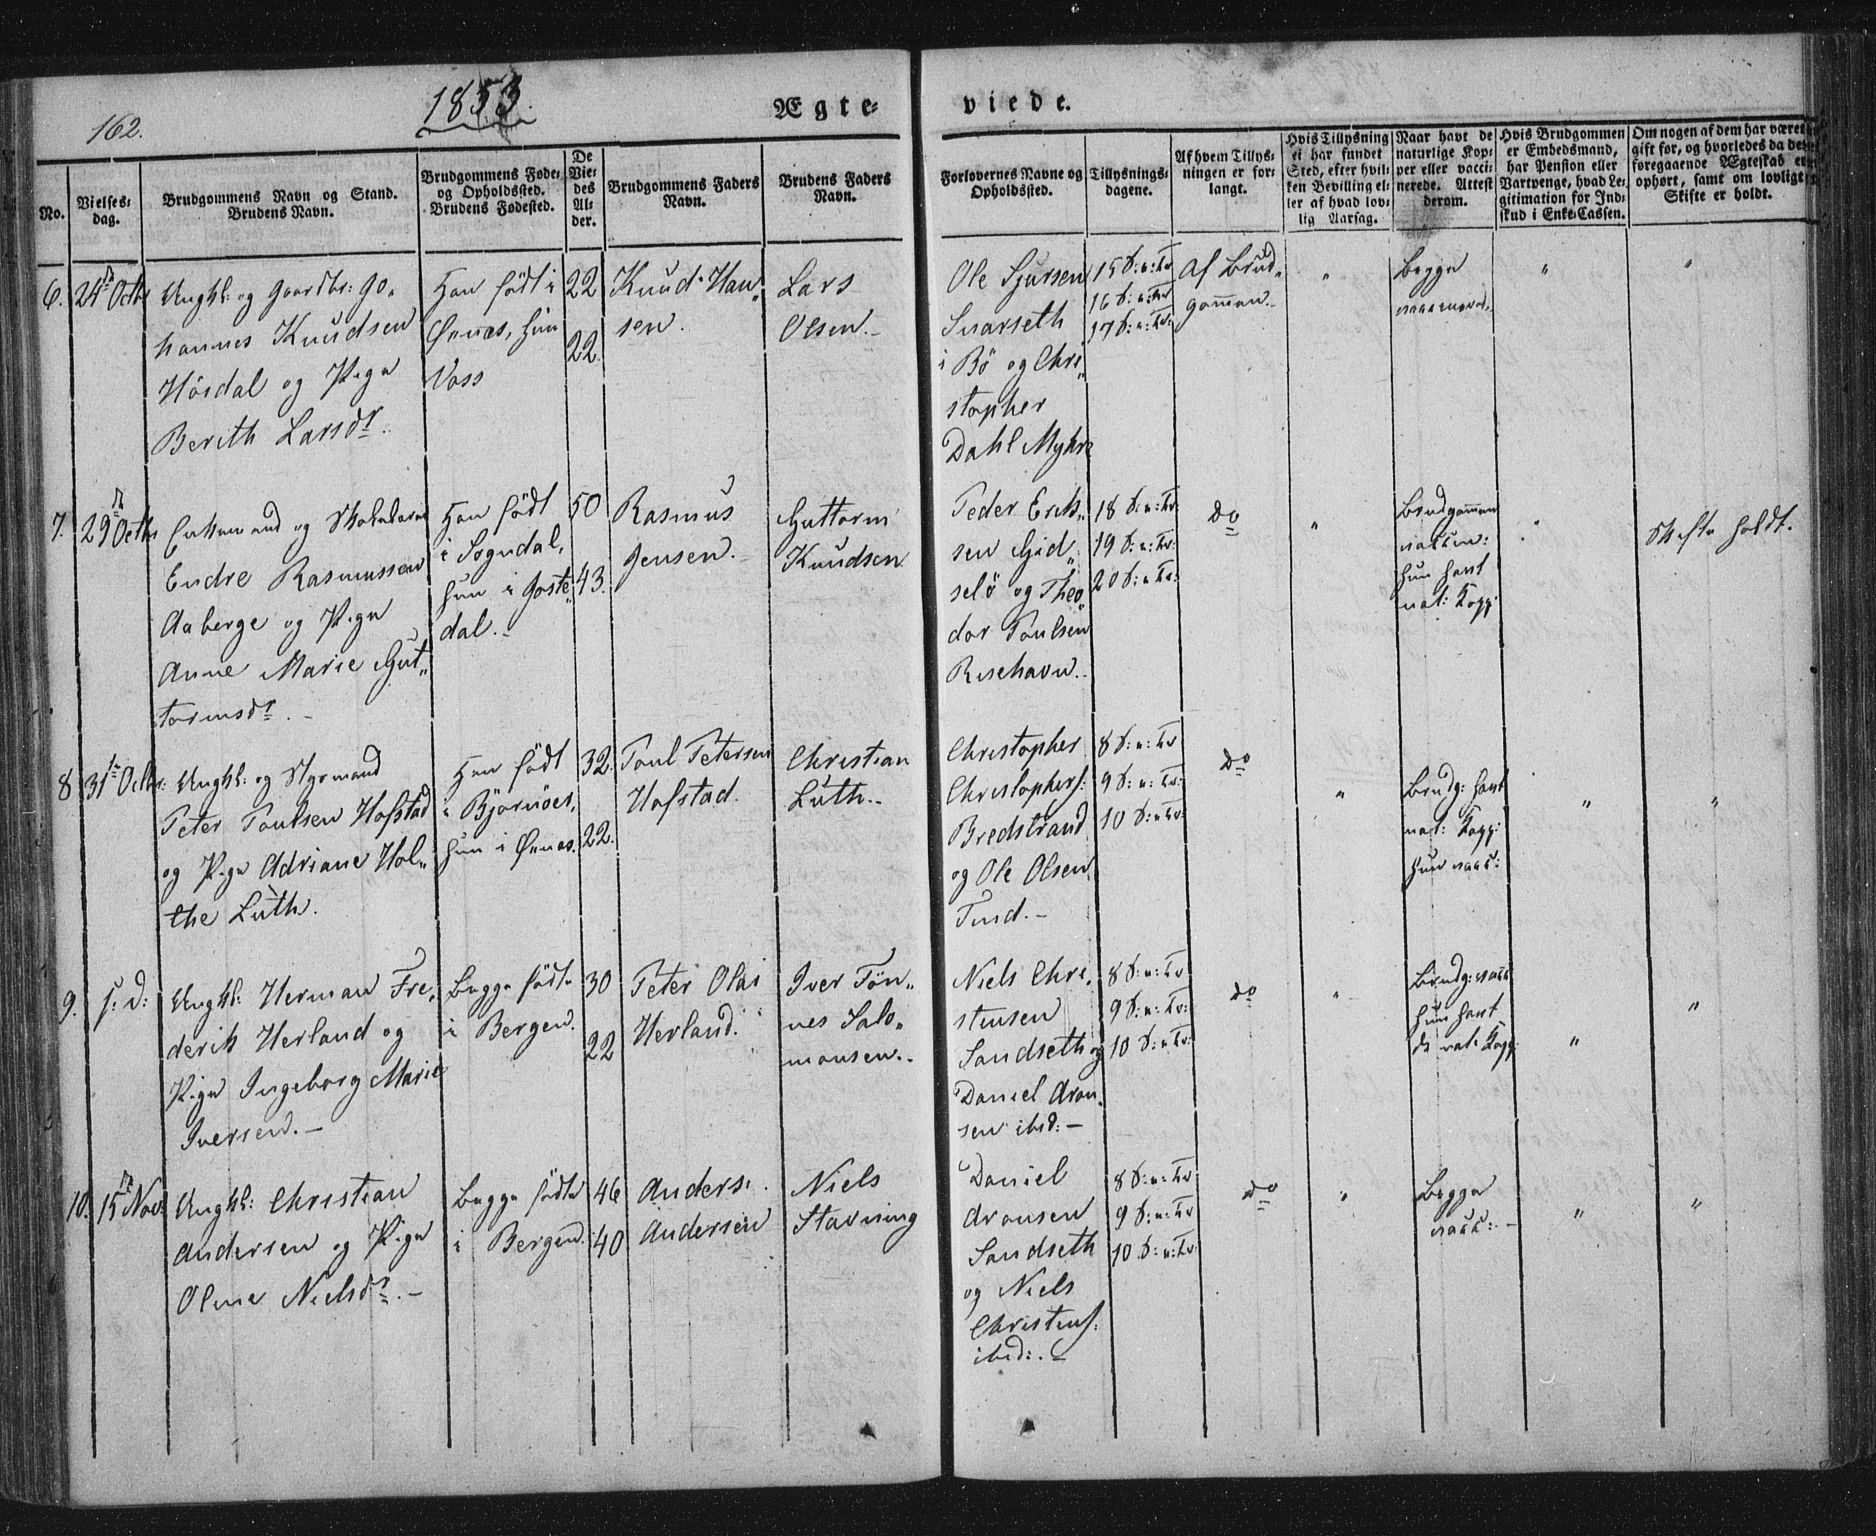 162.
1853.
Ægte-
viede.
No.
Vielses-
dag.
Brudgommens Navn og Stand.
Brudens Navn.
Brudgommens Føde-
og Opholdssted.
Brudens Fødested.
De
Vie-
des
Al-
der.
Brudgommens Faders
Navn.
Brudens Faders
Navn.
Forlovernes Navne og
Opholdssted.
Tillysnings-
dagene.
Af hvem Tillys-
ningen er for-
langt.
Hvis Tillysning
ei har fundet
Sted, efter hvil-
ken Bevilling el-
ler af hvad lov-
lig Aarsag.
Naar havt de
naturlige Kop-
per eller vacci-
nerede. Attest
derom.
Hvis Brudgommen
er Embedsmand,
har Pension eller
Vartpenge, hvad Le-
gitimation for Ind-
skud i Enke-Cassen.
Om nogen af dem har været
gift før, og hvorledes da det
foregaaende Ægteskab er
ophørt, samt om lovligt
Skifte er holdt.
6.
24de Octbr
Ungkl: og Gaardbr: Jo„
hannes Knudsen
Höidal og Pige
Berith Larsdr.
Han födt i
Ønnæs, hun
Voss
22
22.
Knud Han„
sen.
Lars
Olsen.-
Ole Sjursen
Svarseth
i Bö og Chri„
stopher
Dahl Myhre
15 S: e: Tr
16 S: e: Tr
17 S: e: Tr:
Af Brud„
gommen.-
"
Begge
vaccinered.
"
"
7.
29de Octbr
Enkemand og Skolelærer
Endre Rasmussen
Aaberge og Pige
Anne Marie Gut„
tormsdr. -
Han födt
i Sogndal,
hun i Joste„
dal.-
50
43.
Rasmus
Jensen.-
Guttorm
Knudsen
Peder Erik„
sen Gid„
selö og Theo„
dor Poulsen
Risehavn.-
18 S: e: Tr:
19 S: e: Tr:
20 S: e Tr:
do
"
Brudgommen
vaccin:
hun havt
nat: Kopp:
"
Skifte holdt.
8
31te Octbr:
Ungkl: og Styrmand
Peter Poulsen Hofstad
og Pige Adriane Hol„
the Lüth.
Han födt
i Björnöer,
hun i Ønnæs.
32.
22.
Poul Petersen
Hofstad.
Christian
Lüth.-
Christopher
Christophers:
Bredstrand
og Ole Olsen
Tind.-
8 S: e: Tr
9 S: e: Tr:
10 S: e Tr:
do
"
Brudg: havt
nat: Kopp:
hun vacc:
"
"
9.
s: d:
Ungkl: Herman Fre„
derik Herland og
Pige Ingeborg Marie
Iversen.-
Begge födte
i Bergen.
30
22
Peter Olai
Herland.
Iver Tön„
nes Salo„
monsen.-
Niels Chri„
stensen
Sandseth og
Daniel Aron„
sen ibid:-
8 S: e: Tr
9 S: e: Tr
10 S: e Tr:
do
"
Brudg: vacc
hun havt
de nat: Kopp:
"
"
10.
15de Nov:
Ungkl: Christian
Andersen og Pige
Oline Nielsdr.-
Begge födte
i Bergen.
46
40
Anders
Andersen
Niels
Stavning
Daniel
Aronsen
Sandseth
og Niels
Christens:
ibid:.-
8 S: e: Tr:
9 S: e: Tr
10 S: e: Tr:
do
"
Begge
vacc:-
"
"